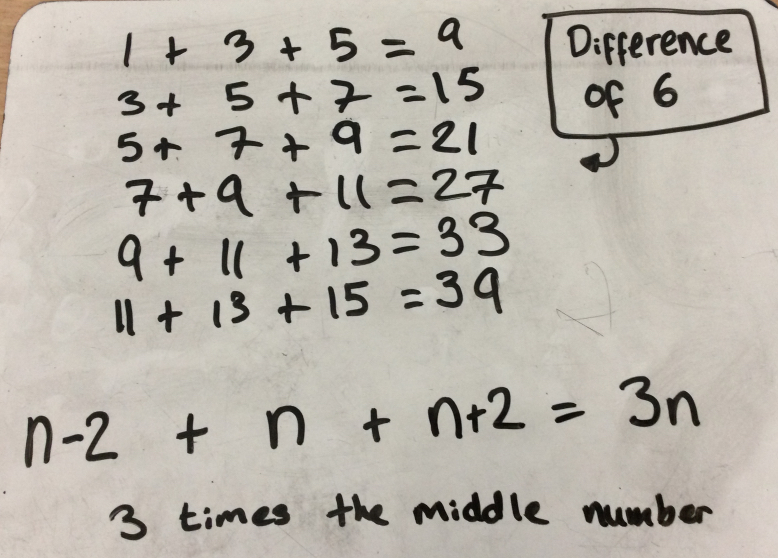 1 + 3 + 5 = 9
3 + 5 + 7 = 15
5 + 7 + 9 = 21
7 + 9 + 11 = 27
9 + 11 + 13 = 33
11 + 13 + 15 = 39
Difference
of 6
n-2 + n + n+2 = 3n
3 times the middle number